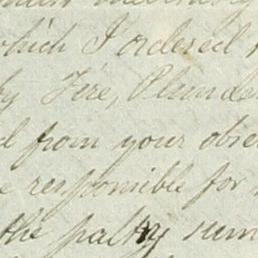 which I ordered
by Fire, Plunder
from your obse
responsible for
the paltry sum